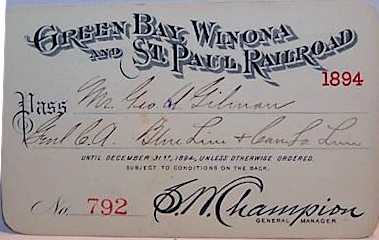 GREEN BAY, WINONA
AND ST. PAUL RAILROAD
1894
Pass Mr. Geo. A Gilman
Genl C.A. Blue Line & Can. So. Line
UNTIL DECEMBER 31ST, 1894, UNLESS OTHERWISE ORDERED.
SUBJECT TO CONDITIONS ON THE BACK.
No. 792 S.W. Champion
GENERAL MANAGER.